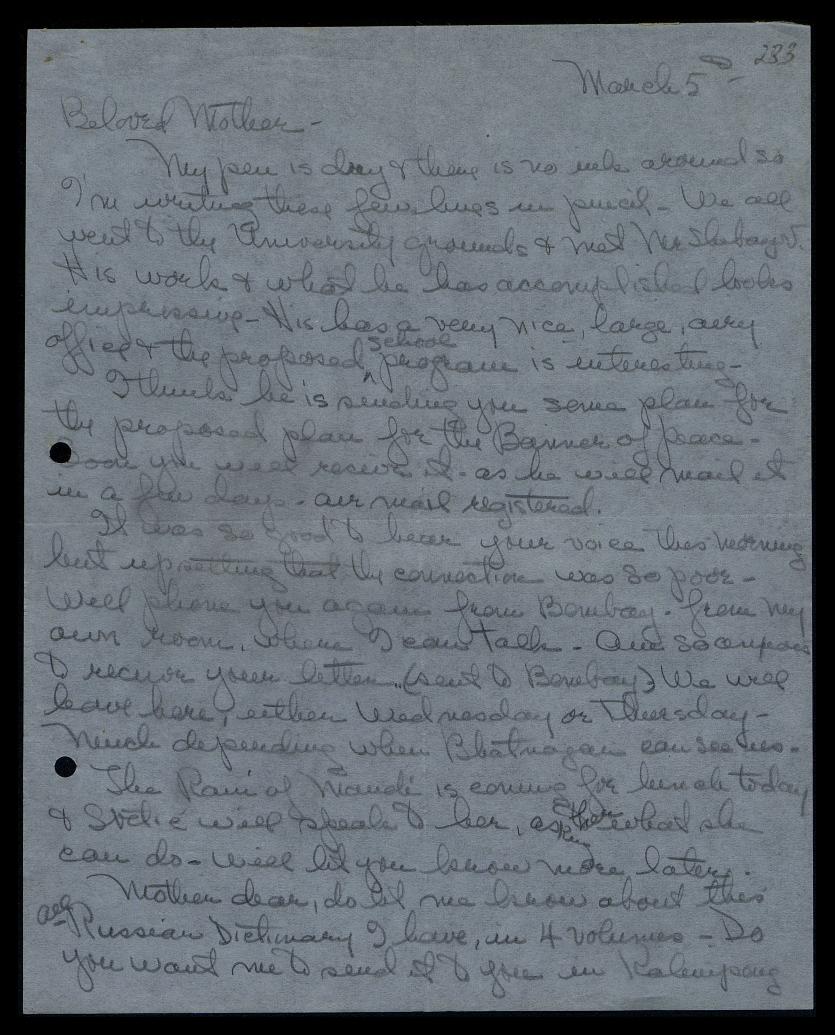 233
March 5th -
Beloved Mother -
My pen is dry & there is no ink around so
I'm writing these few lines in pencil - We all
went to the University grounds & met Mr
His work & what he has accomplished looks
impressive - His has a very nice, large, airy
office & the proposed school program is interesting -
I think he is sending you some plan for
the proposed plan for the Banner of peace -
Soon you will receive it - as he will mail it
in a few days - air mail registered.
It was so good to hear your voice this morning
but upsetting that the connection was so poor -
Will phone you again from Bombay - from my
own room, where I can talk - Am so anxious
to receive your letter, (sent to Bombay) We will
leave here, either Wednesday or Thursday -
Much depending when Bhatnagar can see us -
The Rani of Mandi is coming for lunch today
& will speak to her, asking her what she
can do - Will let you know more later.
Mother dear, do let me know about this
Russian Dictionary I have, in 4 volumes - Do
you want me to send it to you in Kalimpong